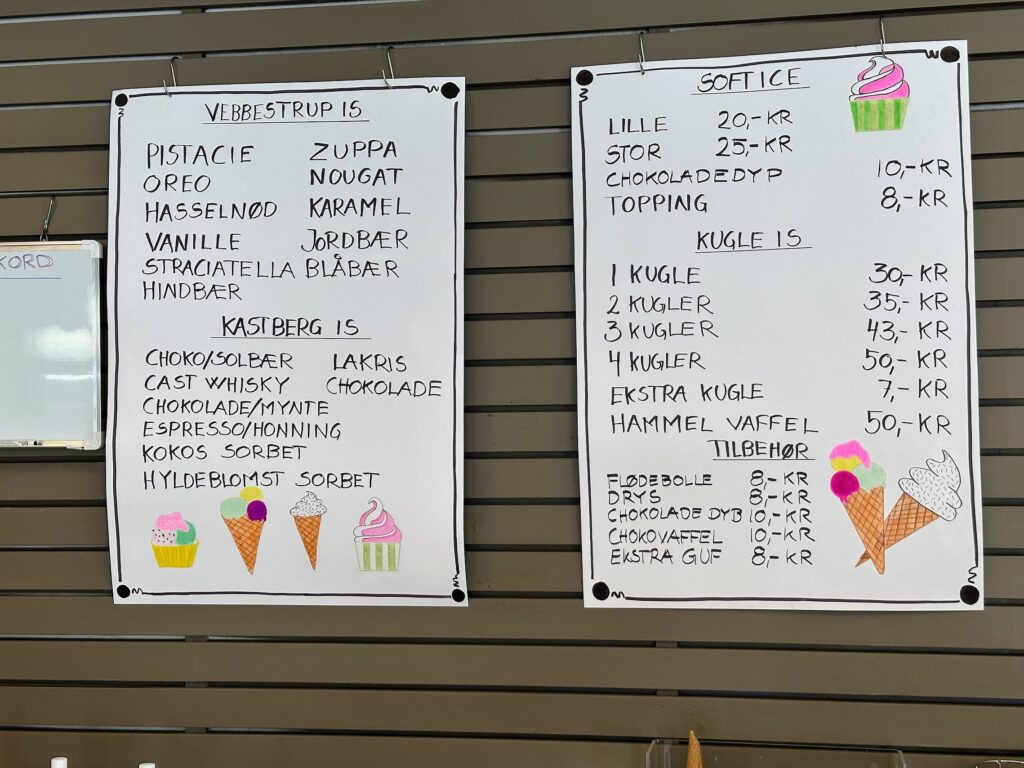 KORD
VEBBESTRUP IS
PISTACIE ZUPPA
OREO NOUGAT
HASSELNØD KARAMEL
VANILLE JORDBÆR
STRACIATELLA BLÅBÆR
HINDBÆR
KASTBERG IS
CHOKO/SOLBÆR LAKRIS
CAST WHISKY CHOKOLADE
CHOKOLADE/MYNTE
ESPRESSO/HONNING
KOKOS SORBET
HYLDEBLOMST SORBET
SOFT ICE
LILLE 20,- KR
STOR 25,- KR
CHOKOLADEDYP 10,- KR
TOPPING 8,- KR
KUGLE IS
1 KUGLE 30,- KR
2 KUGLER 35,- KR
3 KUGLER 43,- KR
4 KUGLER 50,- KR
EKSTRA KUGLE 7,- KR
HAMMEL VAFFEL 50,- KR
TILBEHØR
FLØDEBOLLE 8,- KR
DRYS 8,- KR
CHOKOLADE DYB 10,- KR
CHOKOVAFFEL 10,- KR
EKSTRA GUF 8,- KR